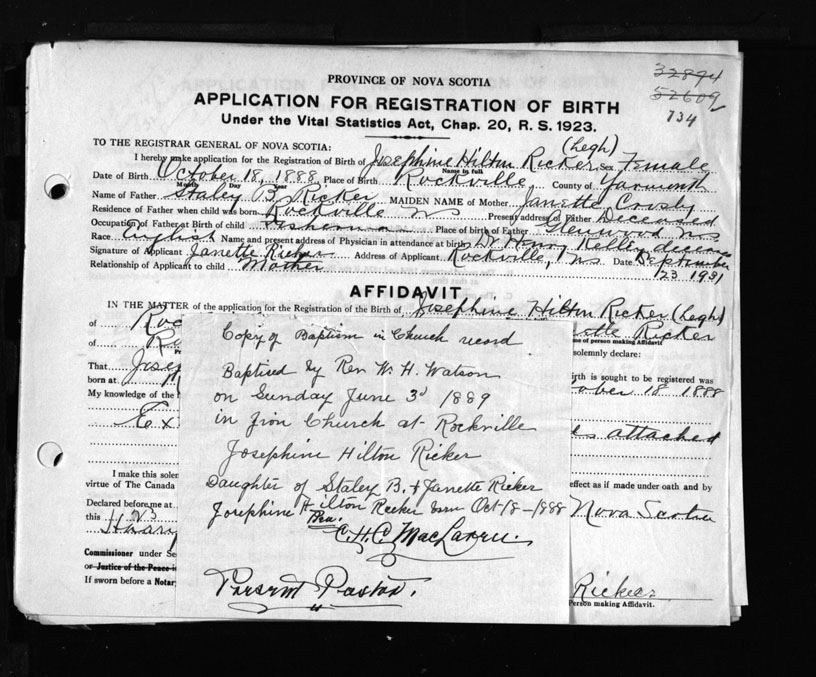 32894
52609
734
PROVINCE OF NOVA SCOTIA
APPLICATION FOR REGISTRATION OF BIRTH
Under the Vital Statistics Act, Chap. 20, R. S. 1923.
TO THE REGISTRAR GENERAL OF NOVA SCOTIA:
(Legh)
I hereby make application for the Registration of Birth of Josephine Hilton Ricker Sex Female
Name in full
Date of Birth October 18, 1888 Place of Birth Rockville, County of Yarmouth
Month Day Year
Name of Father Staley B. Ricker MAIDEN NAME of Mother Janette Crosby
Residence of Father when child was born Rockville NS Present address of Father Deceased
Occupation of Father at Birth of child Fisherman Place of birth of Father Glenwood NS
Race English Name and present address of Physician in attendance at birth Dr Henry Kelley deceased
Signature of Applicant Janette Ricker Address of Applicant Rockville, NS Date September
Relationship of Applicant to child Mother 23 1931
AFFIDAVIT
IN THE MATTER of the application for the Registration of the Birth of Josephine Hilton Ricker (Legh)
of Roc
of Ricker
me of person making Affidavit
solemnly declare:
That Josep
born at
irth is sought to be registered was
ober 18 1888
My knowledge of the
Ex
attached
I make this solem
effect as if made under oath and by
virtue of The Canada
Declared before me at
Nova Scotia
this 23
Commissioner under Se
or Justice of the Peace i
If sworn before a Notar
Ricker
Person making Affidavit.
Copy of Baptism in Church record
Baptised by Rev W. H. Watson
on Sunday June 3d 1889
in Free Church at Rockville
Josephine Hilton Ricker
Daughter of Staley B. + Janette Ricker
Josephine Hilton Ricker born Oct-18-1888
Rev.
C.H.C. MacLaren.
Present Pastor.